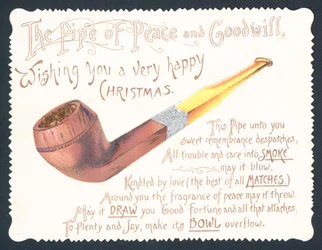 The Pipe of Peace and Goodwill,
Wishing you a very happy
CHRISTMAS.
This Pipe unto you
sweet remembrance despatches,
All trouble and care into SMOKE
may it blow,
Kindled by love (the best of all MATCHES.)
Around you the fragrance of peace may it throw.
May it DRAW you Good fortune and all that attaches,
To Plenty and Joy, make its BOWL overflow.